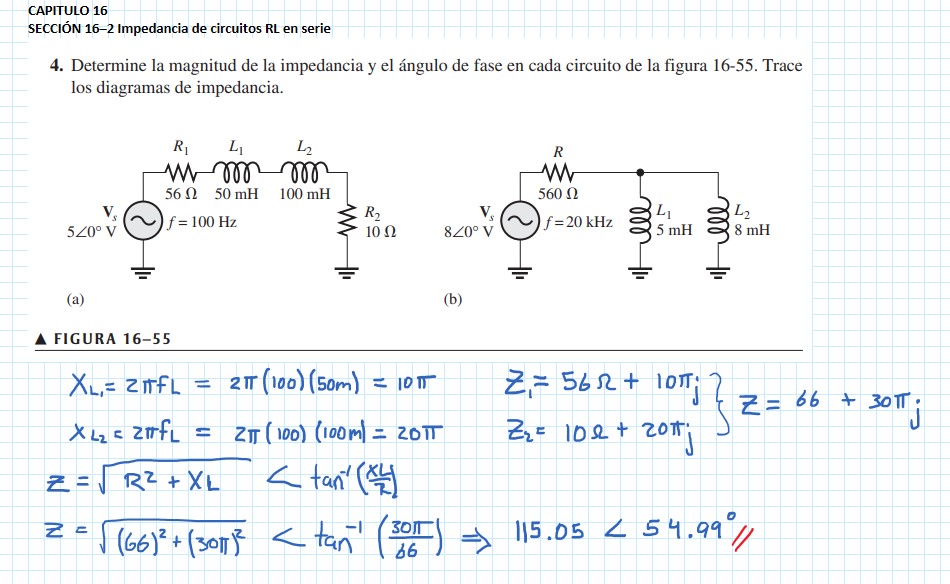 CAPITULO 16
SECCIÓN 16–2 Impedancia de circuitos RL en serie
4. Determine la magnitud de la impedancia y el ángulo de fase en cada circuito de la figura 16-55. Trace
los diagramas de impedancia.
R1 L1 L2
56 Ω 50 mH 100 mH
Vs
5∠0° V
f = 100 Hz
R2
10 Ω
(a)
R
560 Ω
Vs
8∠0° V
f = 20 kHz
L1
5 mH
L2
8 mH
(b)
▲ FIGURA 16–55
XL1 = 2πfL = 2π(100)(50m) = 10π
XL2 = 2πfL = 2π(100)(100m) = 20π
Z1 = 56Ω + 10πj
Z2 = 10Ω + 20πj
} Z = 66 + 30πj
Z = √(R² + XL) < tan⁻¹(XL/R)
Z = √((66)² + (30π)²) < tan⁻¹(30π/66) ⇒ 115.05 < 54.99° //